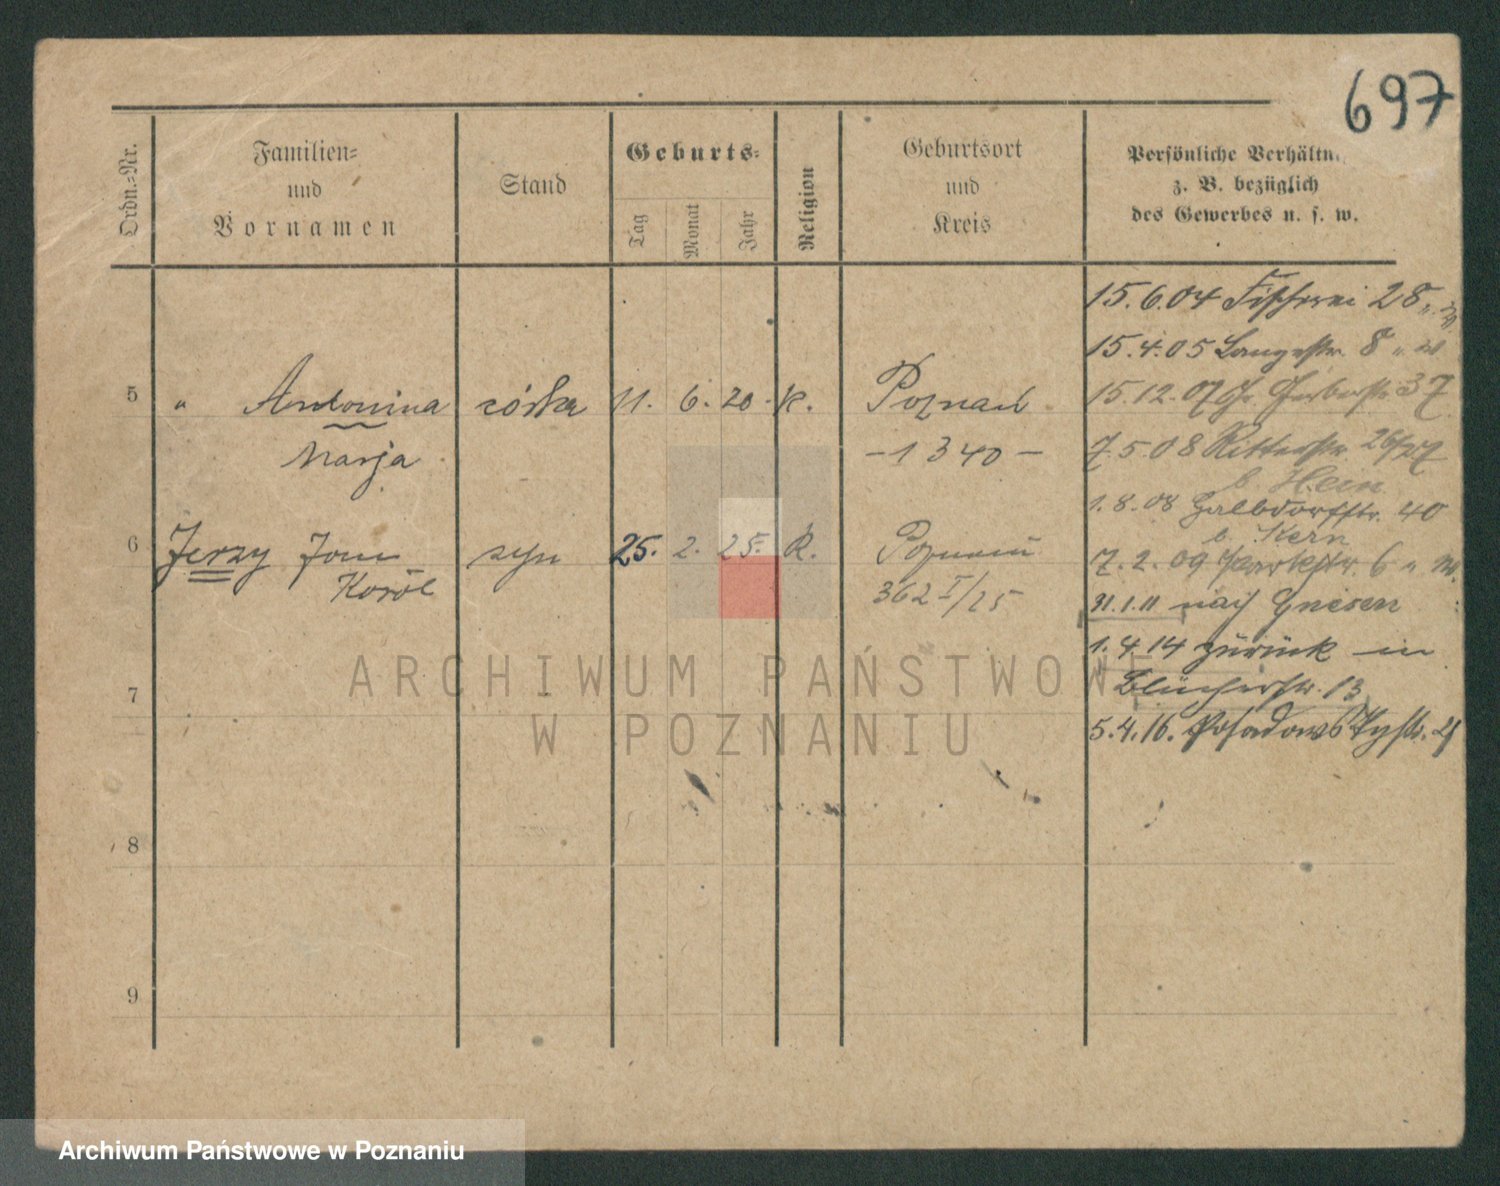 697
Ordn.-Nr.
Familien-
und
Vornamen
Stand
Geburts-
Tag
Monat
Jahr
Religion
Geburtsort
und
Kreis
Persönliche Verhältn
z. B. bezüglich
des Gewerbes u. s. w.
15.6.04 Fischerei 28
15.4.05 Langestr. 8 " w
5 " Antonina córka 11. 6. 20. k. Poznań
15.12.07 Gr. Gerberstr. 37
Marja
- 1340 -
7.5.08 Ritterstr. 26/27
b. Hein
1.8.08 Halbdorfstr. 40
b. Kern
6 Jerzy Jan syn 25. 2. 25. k. Poznań
7.2.09 Parkstr. 6 " w.
Karól
362 I/25
31.1.11 nach Gnesen
1.4.14 zurück in
7
Blücherstr. 13
5.4.16. Posadowskystr. 21
8
9
ARCHIWUM PAŃSTWOWE
W POZNANIU
Archiwum Państwowe w Poznaniu